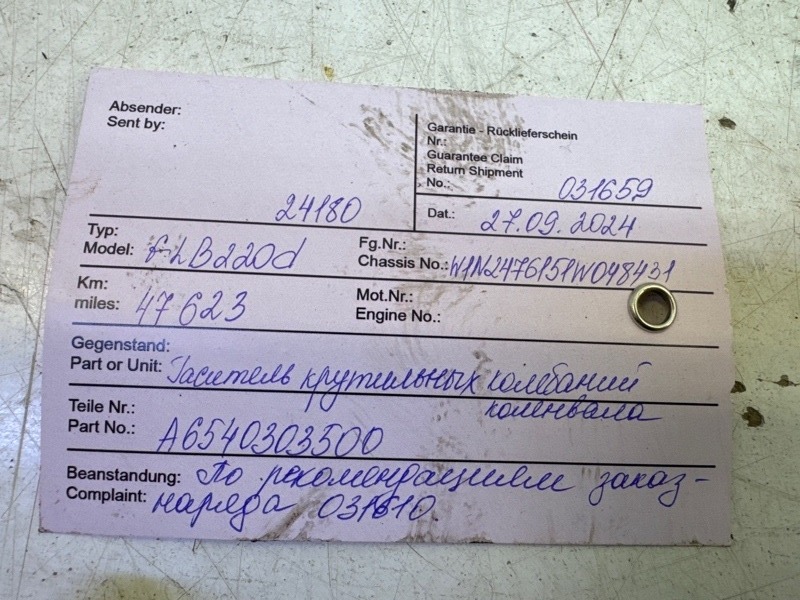 Absender:
Sent by:
24180
Garantie - Rücklieferschein
Nr.:
Guarantee Claim
Return Shipment
No.: 031659
Dat.: 27.09.2024
Typ:
Model: GLB220d
Fg.Nr.:
Chassis No.: W1N2476151W048431
Km:
miles: 47623
Mot.Nr.:
Engine No.:
Gegenstand:
Part or Unit: Гаситель крутильных колебаний
коленвала
Teile Nr.:
Part No.: A6540303500
Beanstandung: По рекомендациям заказ-
Complaint: наряда 031610.